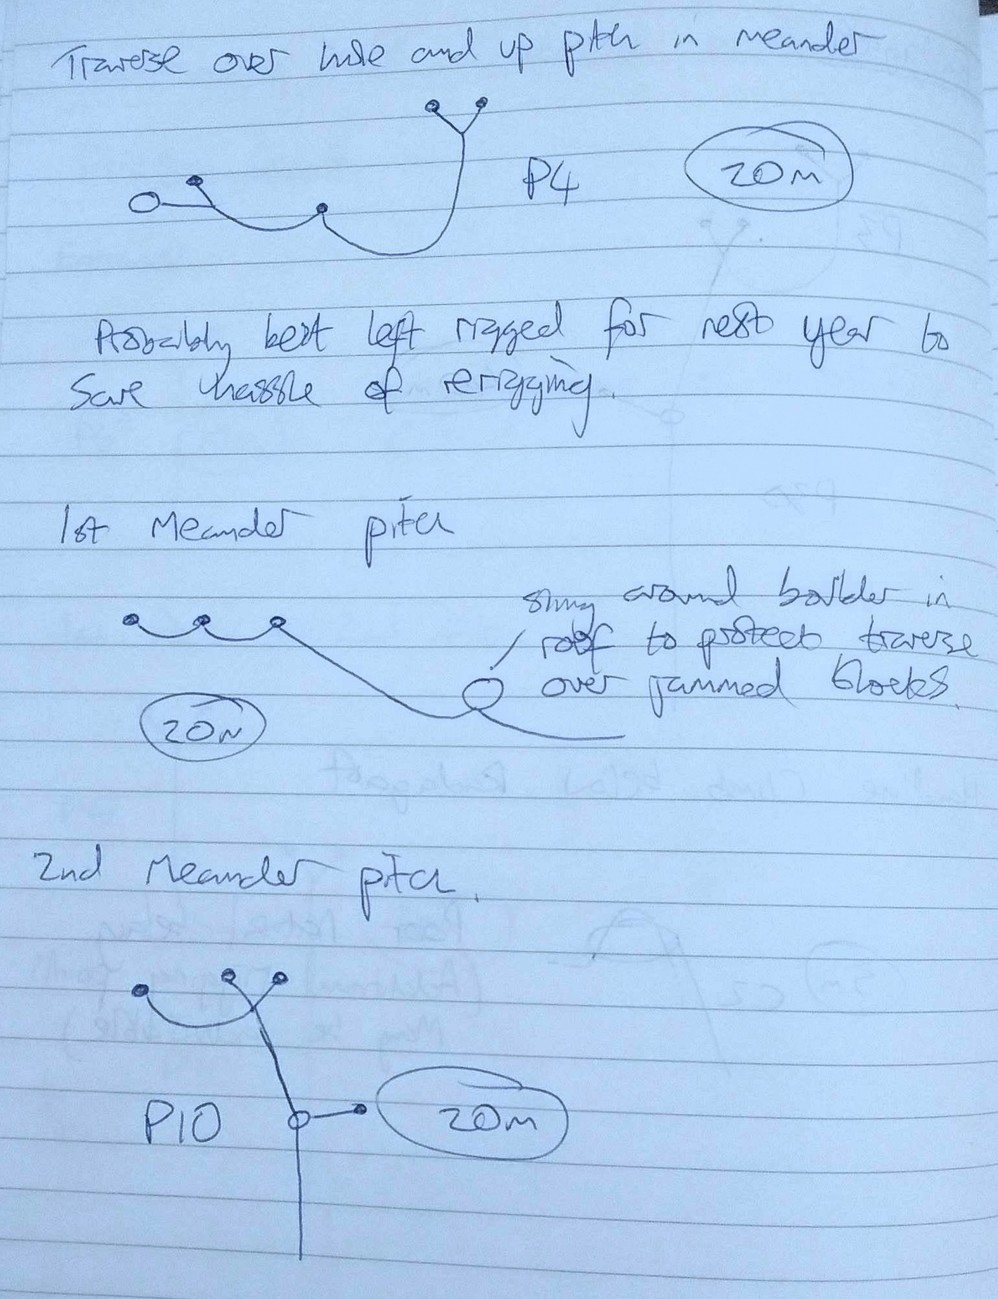 Traverse over hole and up pitch in meander
P4 20m
Probably best left rigged for next year to
save hassle of rerigging.
1st Meander pitch
sling around boulder in
roof to protect traverse
over jammed blocks.
20m
2nd Meander pitch.
P10 20m